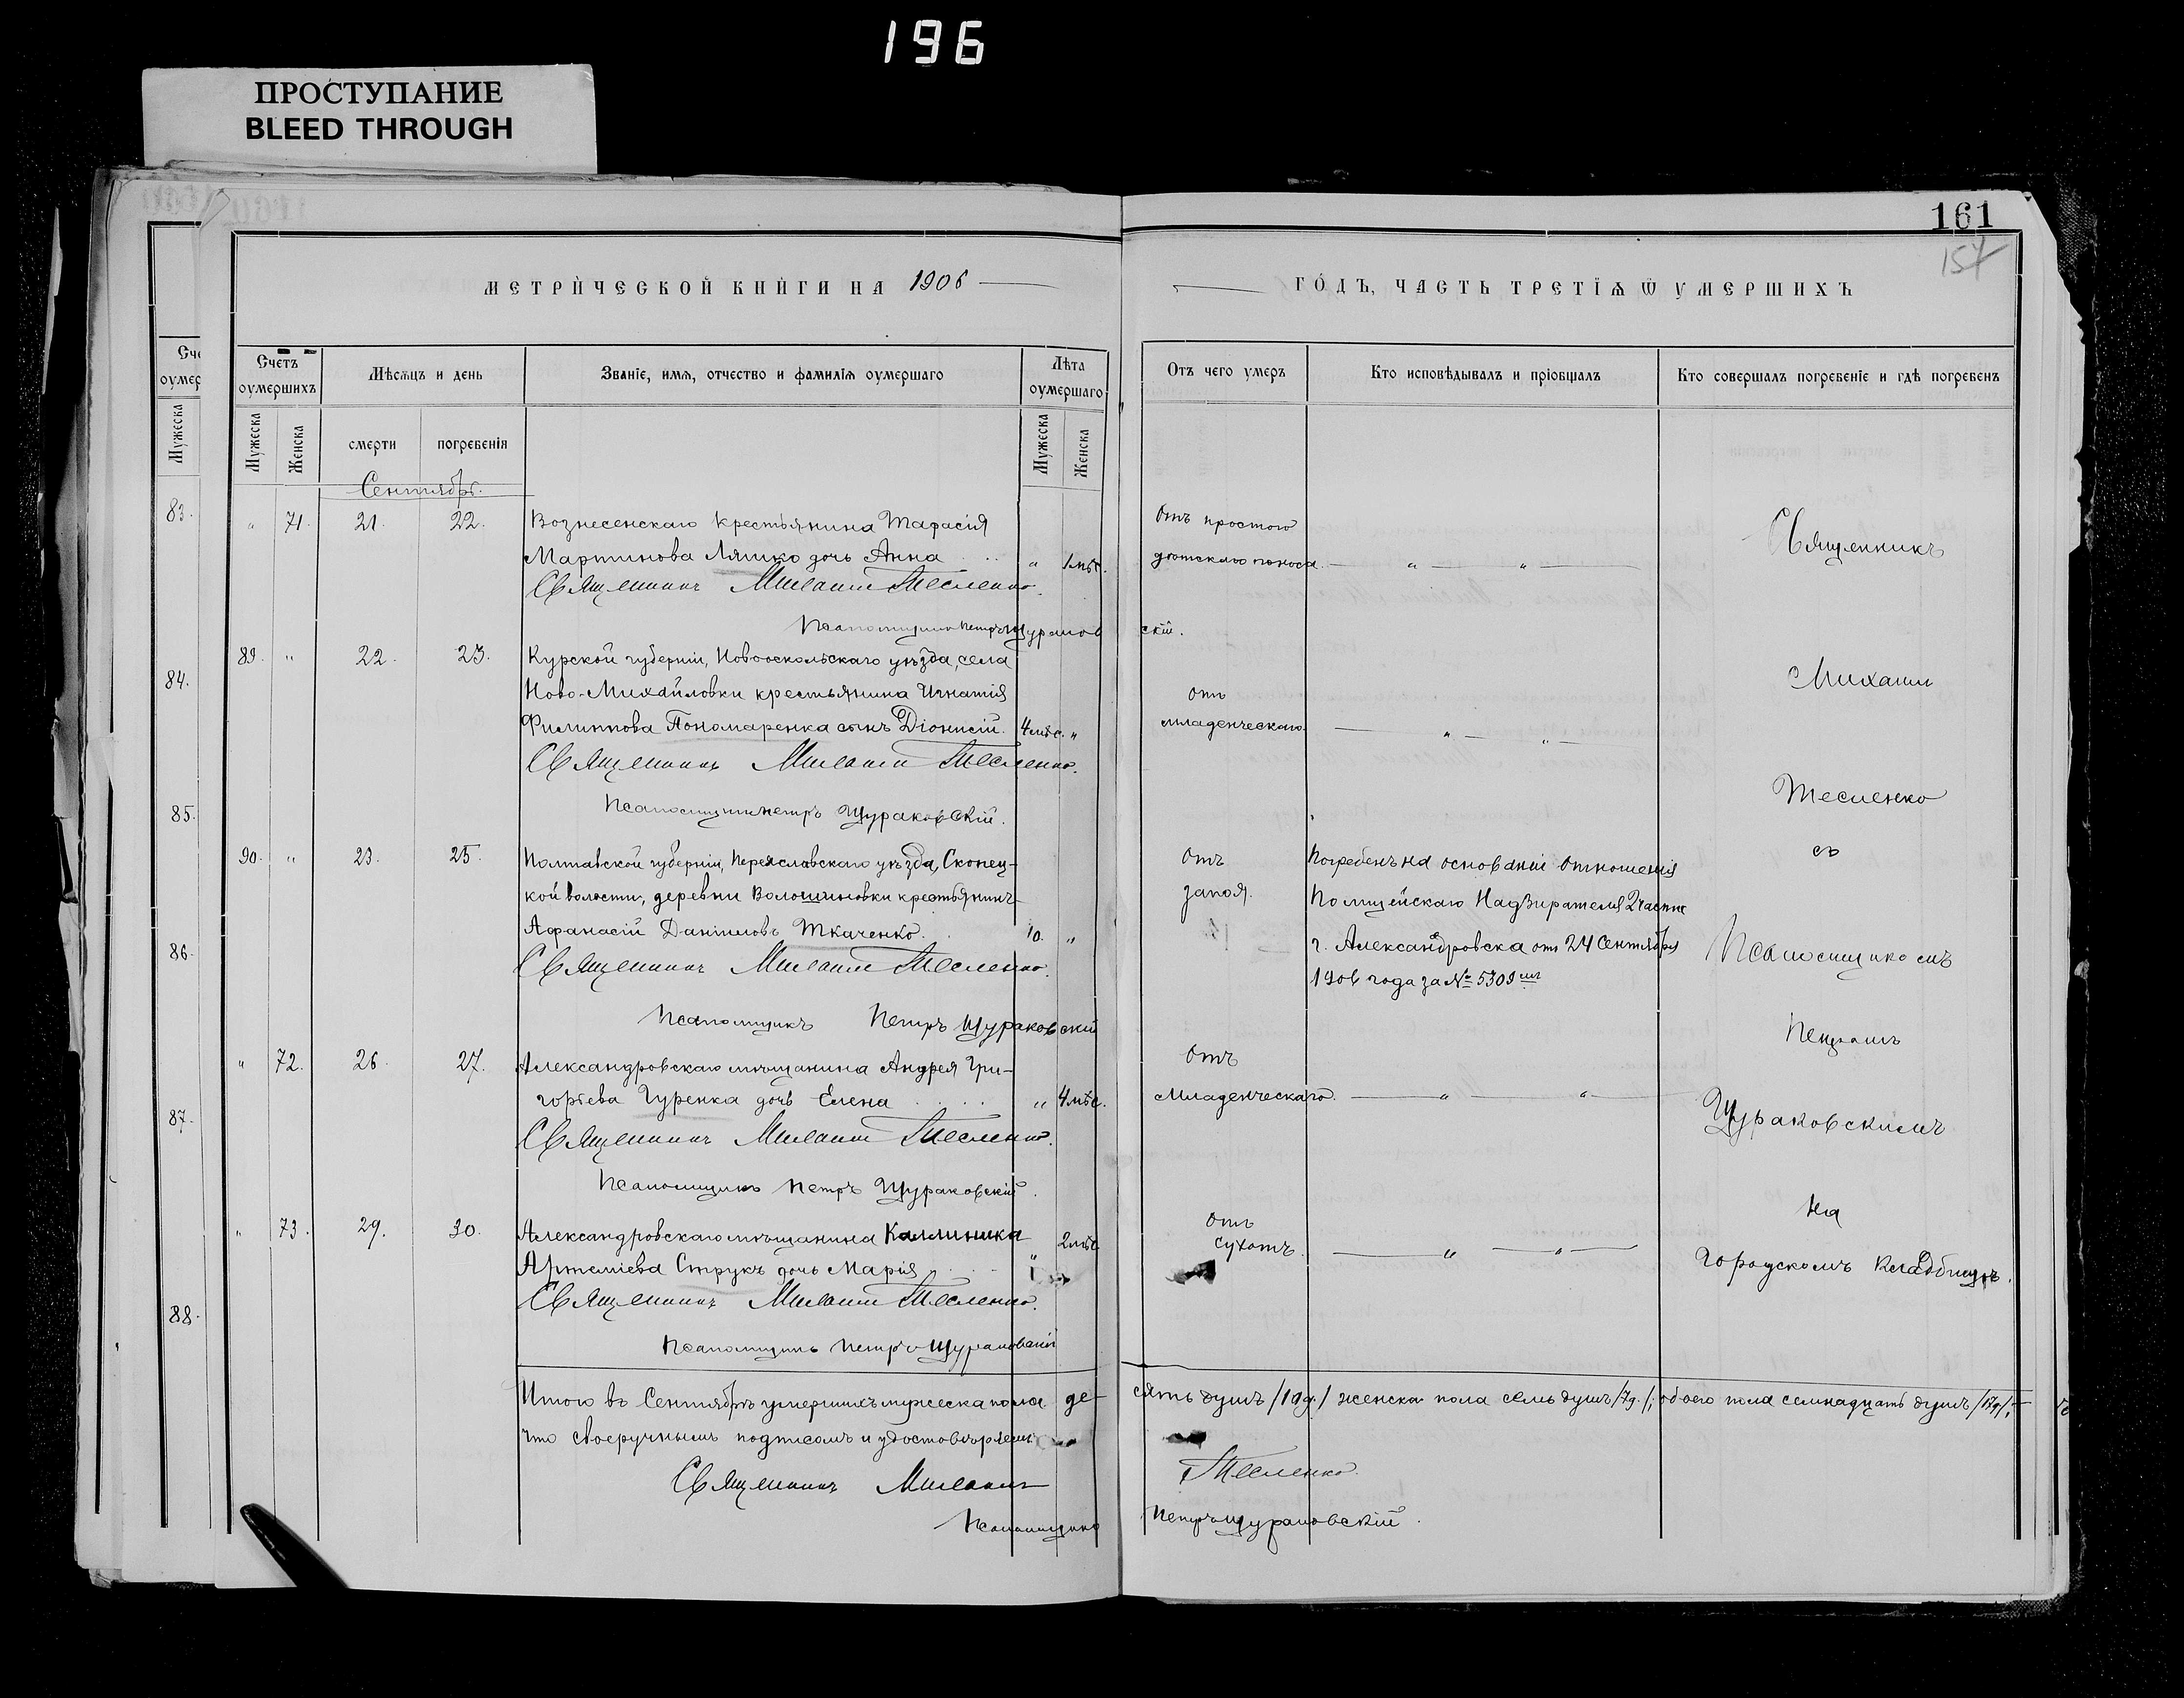 196
ПРОСТУПАНИЕ
BLEED THROUGH
161
157
МЕТРИЧЕСКОЙ КНИГИ НА 1906
ГОДЪ, ЧАСТЬ ТРЕТІЯ Ѿ УМЕРШИХЪ
Счетъ оумершихъ
Мѣсяцъ и день
Званіе, имя, отчество и фамилія оумершаго
Лѣта оумершаго
Отъ чего умеръ
Кто исповѣдывалъ и пріобщалъ
Кто совершалъ погребеніе и гдѣ погребенъ
Мужеска
Женска
смерти
погребенія
Мужеска
Женска
Сентябрь.
83.
84.
85.
86.
87.
88.
" 71. 21. 22. Вознесенскаго крестьянина Тарасія
Мартинова Ляшко дочь Анна " 1 мѣс.
Отъ простого
дѣтскаго поноса. — " — " —
Священникъ Михаилъ Тесленко.
Псаломщикъ Петръ Щураковскій.
89. " 22. 23. Курской губерніи, Новооскольскаго уѣзда, села
Ново-Михайловки крестьянина Игнатія
Филиппова Пономаренка сынъ Діонисій. 4 мѣс. "
Отъ
младенческаго. — " — " —
Священникъ Михаилъ Тесленко.
Псаломщикъ Петръ Щураковскій.
90. " 23. 25. Полтавской губерніи, Переяславскаго уѣзда, Сконец-
кой волости, деревни Волошиновки крестьянинъ
Афанасій Даніиловъ Ткаченко. "
Отъ
запоя.
Погребенъ на основаніи отношенія
Полицейскаго Надзирателя 2 части
г. Александровска отъ 24 Сентября
1906 года за № 5309
Священникъ Михаилъ Тесленко.
Псаломщикъ Петръ Щураковскій
" 72. 26. 27. Александровскаго мѣщанина Андрея Гри-
горьева Гуренка дочь Елена " 4 мѣс.
Отъ
Младенческаго. — " — " —
Священникъ Михаилъ Тесленко.
Псаломщикъ Петръ Щураковскій.
" 73. 29. 30. Александровскаго мѣщанина Каллиника
Артеміева Струкъ дочь Марія " 2 мѣс
Отъ
сухотъ. — " — " —
Священникъ Михаилъ Тесленко.
Псаломщикъ Петръ Щураковскій
Священникъ
Михаилъ
Тесленко
съ
Псаломщикомъ
Петромъ
Щураковскимъ
на
Городскомъ Кладбищѣ.
Итого въ Сентябрѣ умершихъ мужеска пола де-сять душъ /10 д./ женска пола семь душъ /7 д./; обоего пола семнадцать душъ /17 д/;
что своеручнымъ подписомъ и удостовѣряемъ
Священникъ Михаилъ Тесленко.
Псаломщикъ Петръ Щураковскій.